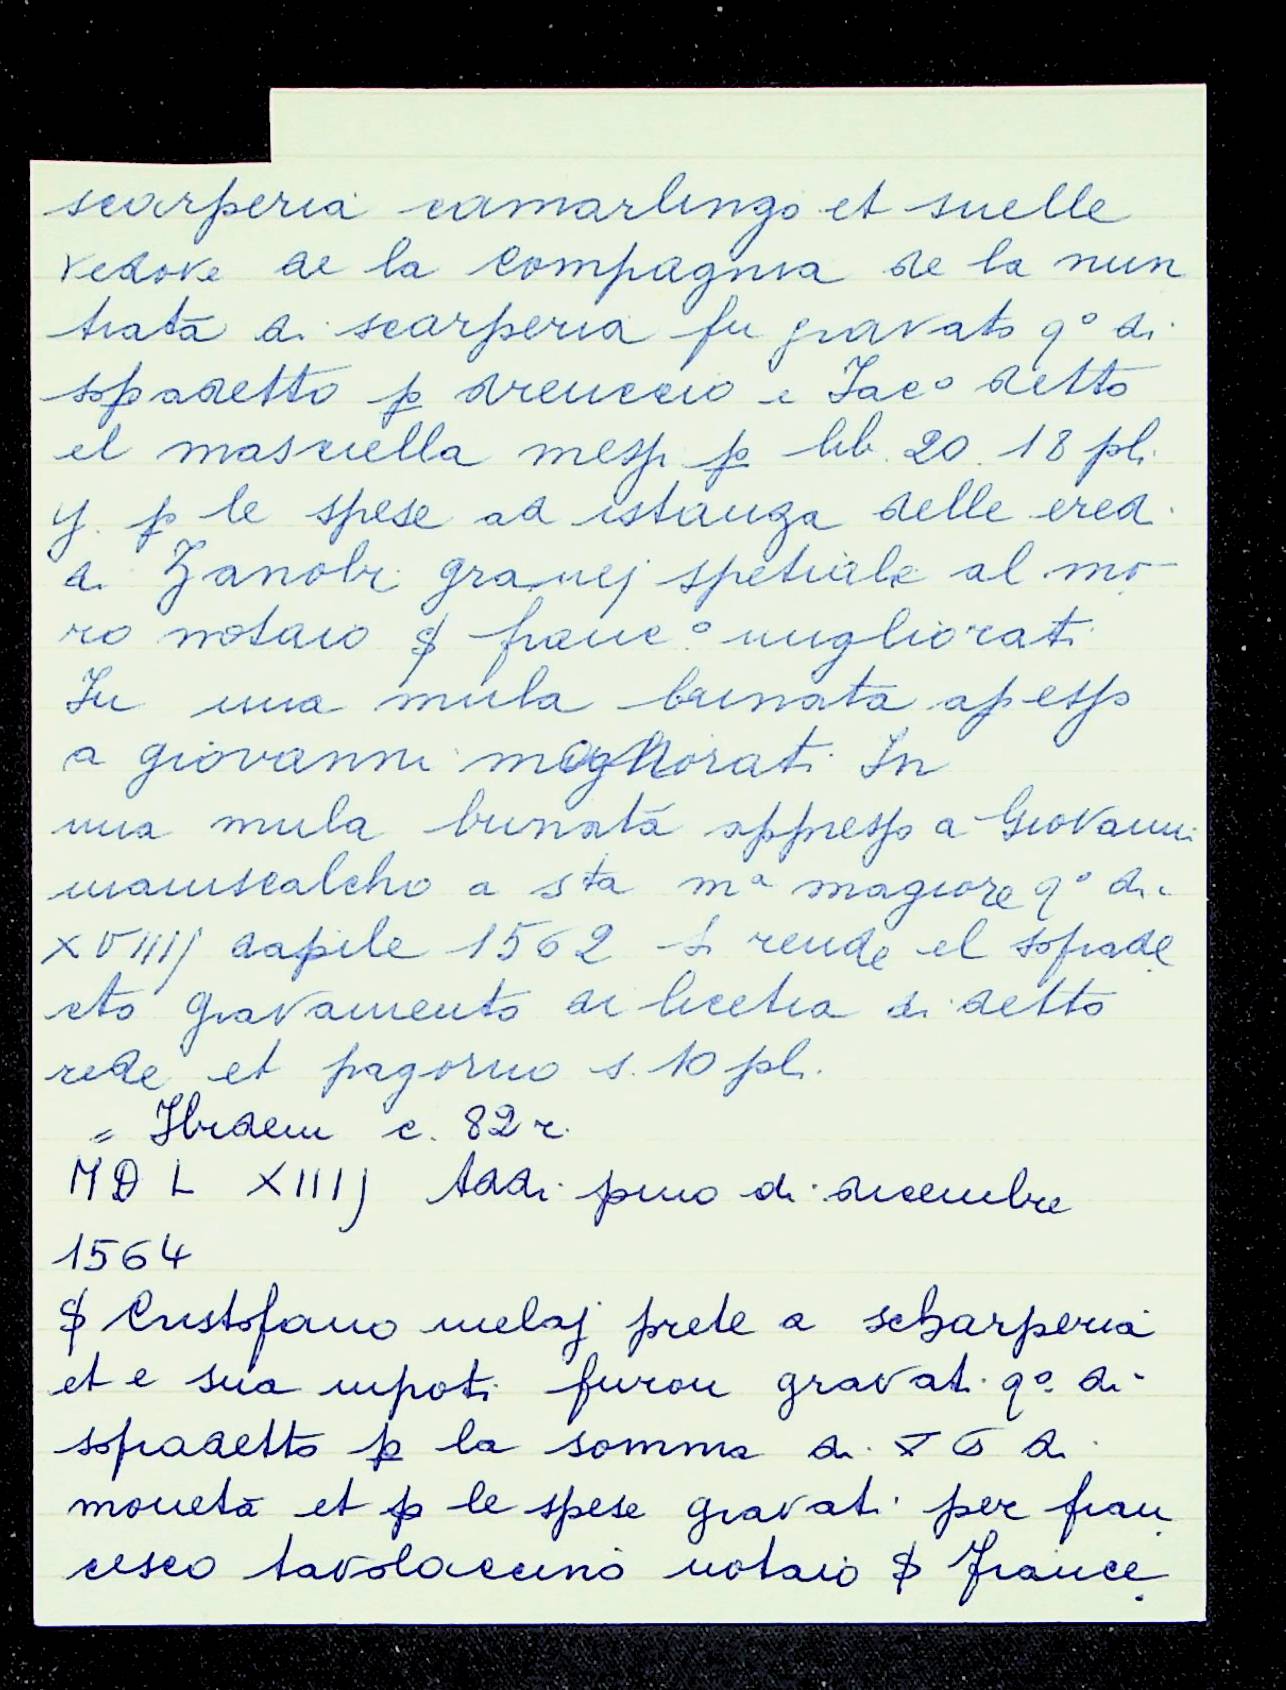 scarperia camarlingo et suelle
vedove de la Compagnia de la nun
tiata di scarperia fu gravato q° di
sopradetto p drenccio e Jac° detto
el mascella mesp p lib. 20. 18 pli.
y. p le spese ad istanza delle ered.
di Zanobi grancj spetiale al mo-
ro notaio $ franc.° migliorati
In una mula brinata apesso
a giovanni migliorati In
una mula brinata appesso a Giovanni
maniscalcho a sta ma magiore q° di
XVIIIJ dapile 1562 si rende el soprade
cto gravamento di licetia di detto
rede et pagorno s. 10 pli.
= Ibidem c. 82 r.
MDLXIIIJ Addi pmo di dicembre
1564
$ Cristofano melaj prete a scharperia
et e sua nipoti furon gravati q° di
sopradetto p la somma di di
moneta et p le spese gravati per fran
cesco tavolaccino notaio $ France